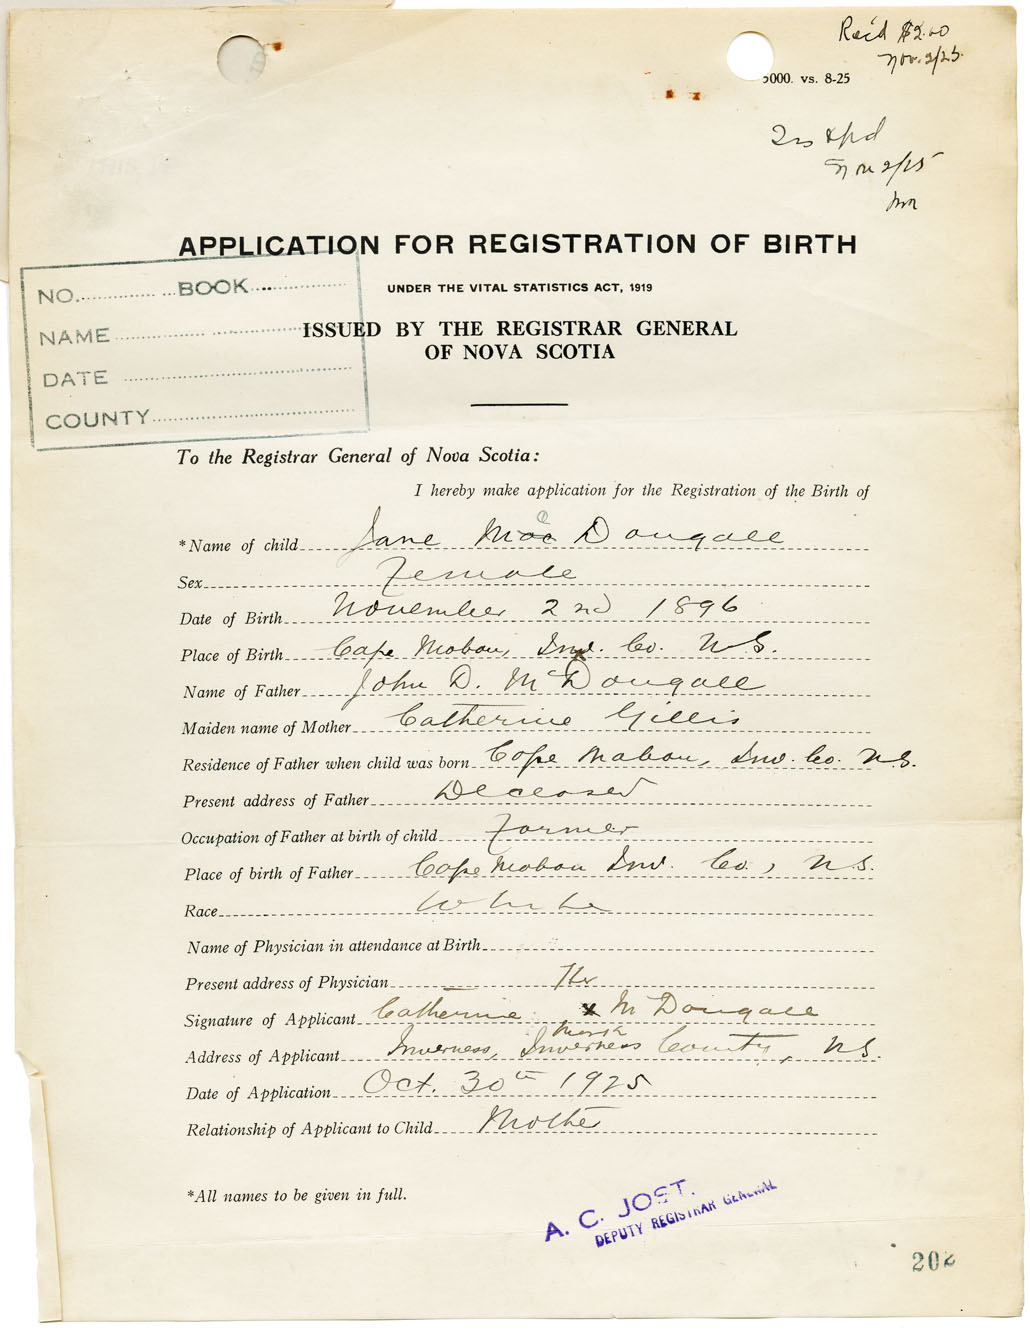 Rec'd $2.00
Nov. 2/25.
5000. vs. 8-25
Nov 2/25
APPLICATION FOR REGISTRATION OF BIRTH
UNDER THE VITAL STATISTICS ACT, 1919
ISSUED BY THE REGISTRAR GENERAL
OF NOVA SCOTIA
NO. BOOK
NAME
DATE
COUNTY
To the Registrar General of Nova Scotia:
I hereby make application for the Registration of the Birth of
*Name of child Jane Mac Dougall
Sex Female
Date of Birth November 2nd 1896
Place of Birth Cape Mabou, Inv. Co. N.S.
Name of Father John D. McDougall
Maiden name of Mother Catherine Gillis
Residence of Father when child was born Cape Mabou, Inv. Co. N.S.
Present address of Father Deceased
Occupation of Father at birth of child Farmer
Place of birth of Father Cape Mabou Inv. Co., N.S.
Race White
Name of Physician in attendance at Birth
Present address of Physician
Her
Signature of Applicant Catherine x McDougall
Mark
Address of Applicant Inverness, Inverness County, N.S.
Date of Application Oct. 30th 1925
Relationship of Applicant to Child Mother
*All names to be given in full.
A. C. JOST.
DEPUTY REGISTRAR GENERAL
202